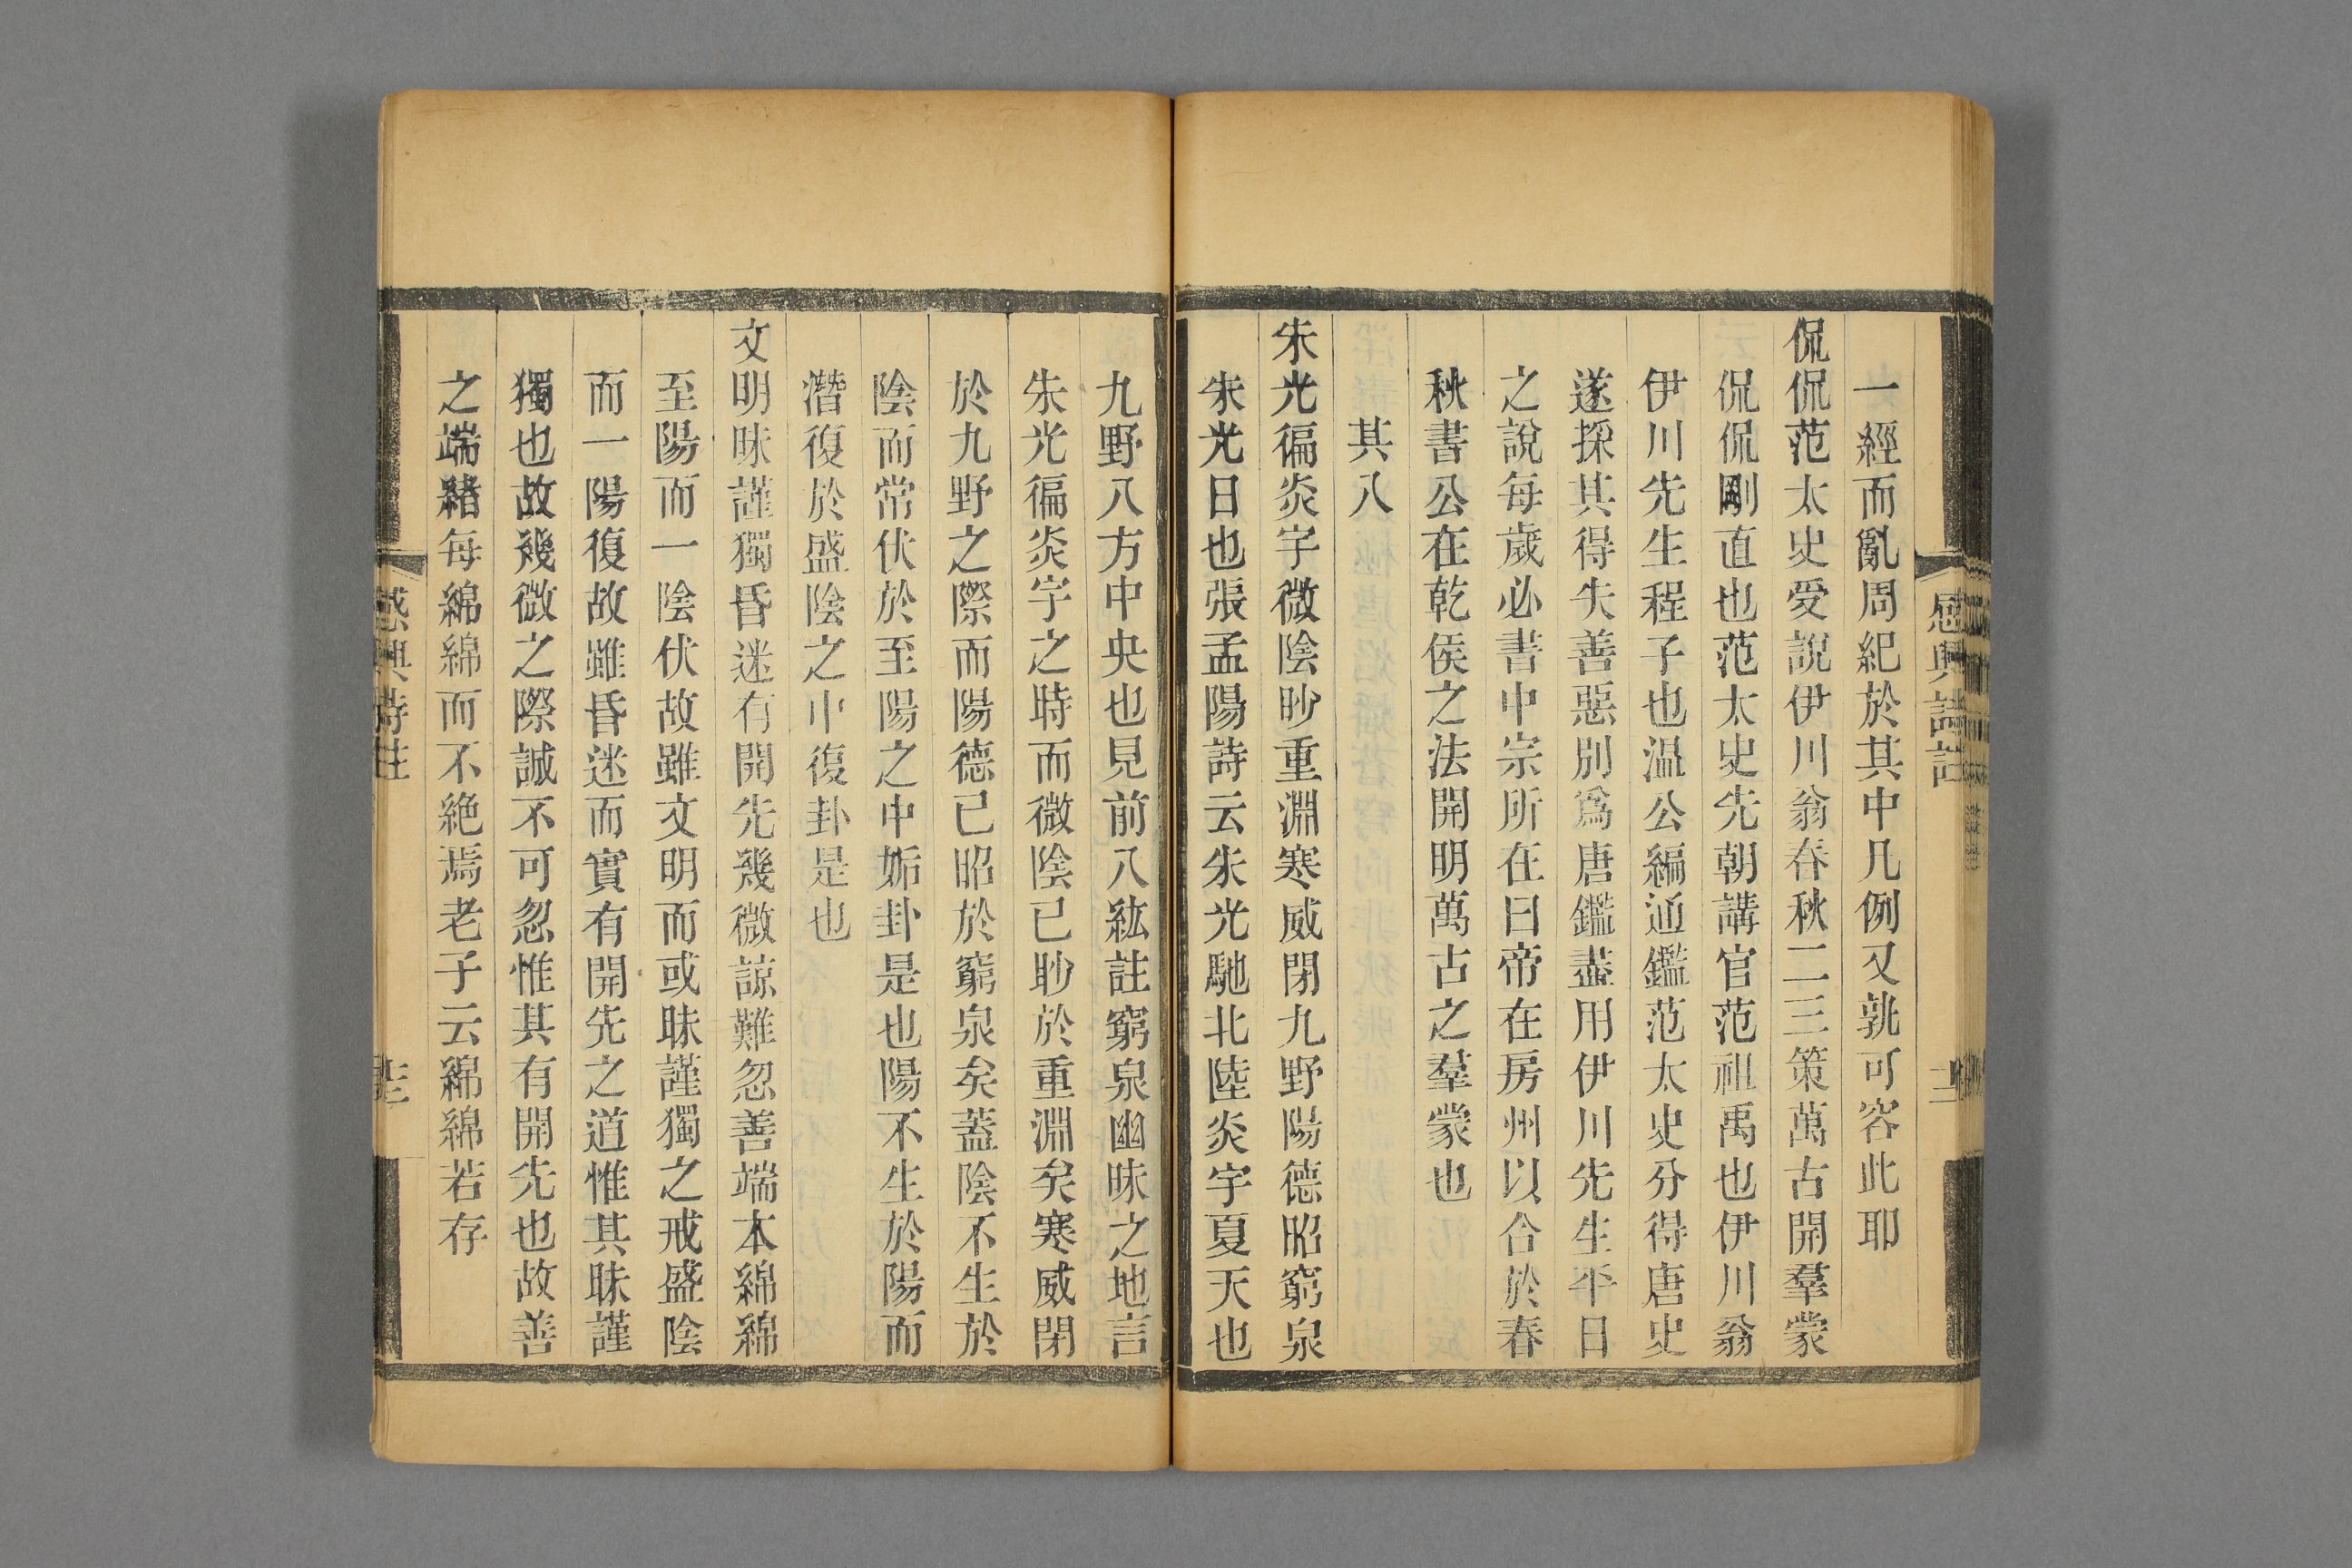 感興詩註
一經而亂周紀於其中凡例又孰可容此耶
侃侃范太史受說伊川翁春秋二三策萬古開羣蒙
侃侃剛直也范太史先朝講官范祖禹也伊川翁
伊川先生程子也温公編通鑑范太史分得唐史
遂採其得失善惡別爲唐鑑盡用伊川先生平日
之說每歲必書中宗所在曰帝在房州以合於春
秋書公在乾侯之法開明萬古之羣蒙也
其八
朱光徧炎宇微陰眇重淵寒威閉九野陽德昭窮泉
朱光日也張孟陽詩云朱光馳北陸炎宇夏天也
九野八方中央也見前八紘註窮泉幽昧之地言
朱光徧炎宇之時而微陰已眇於重淵矣寒威閉
於九野之際而陽德已昭於窮泉矣蓋陰不生於
陰而常伏於至陽之中姤卦是也陽不生於陽而
潛復於盛陰之中復卦是也
文明昧謹獨昏迷有開先幾微諒難忽善端本綿綿
至陽而一陰伏故雖文明而或昧謹獨之戒盛陰
而一陽復故雖昏迷而實有開先之道惟其昧謹
獨也故幾微之際誠不可忽惟其有開先也故善
之端緒每綿綿而不絶焉老子云綿綿若存
感興詩註